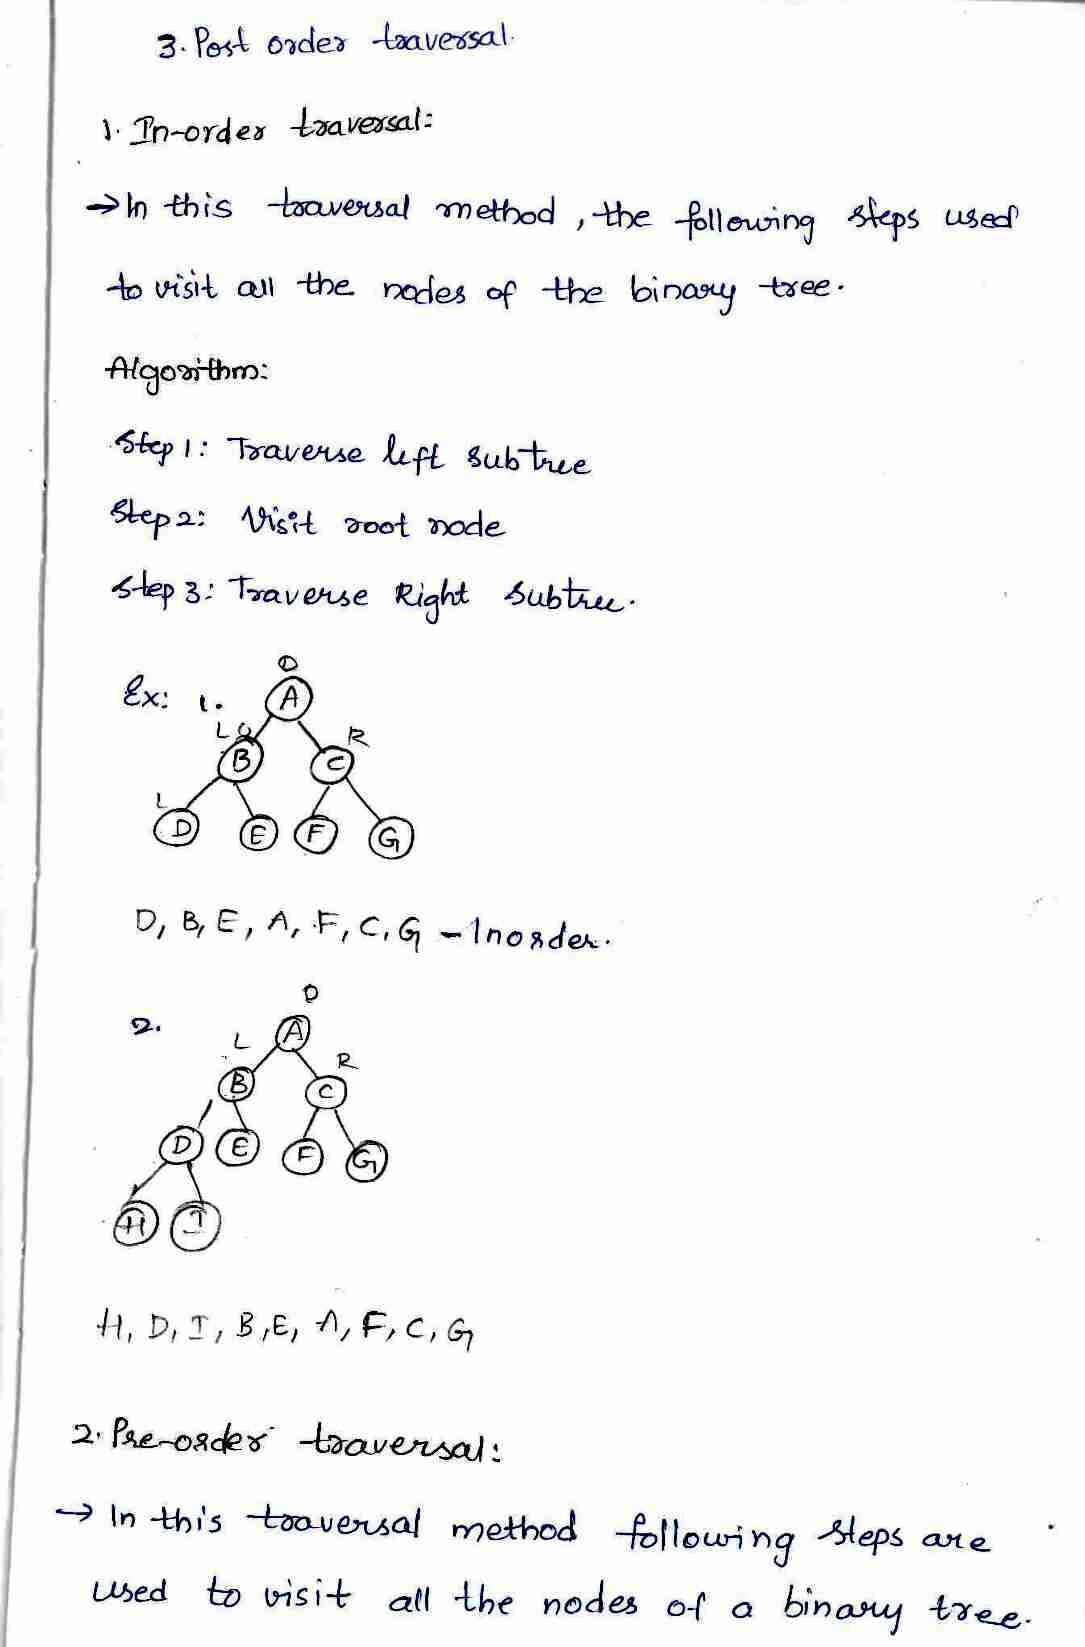 3. Post order traversal.
1. In-order traversal:
→ In this traversal method, the following steps used
to visit all the nodes of the binary tree.
Algorithm:
Step 1: Traverse left subtree
Step 2: Visit root node
Step 3: Traverse Right subtree.
D
Ex: 1. A
L R
B C
L
D E F G
D, B, E, A, F, C, G - Inorder.
D
2. A
L R
B C
D E F G
H I
H, D, I, B, E, A, F, C, G
2. Pre-order traversal:
→ In this traversal method following steps are
used to visit all the nodes of a binary tree.